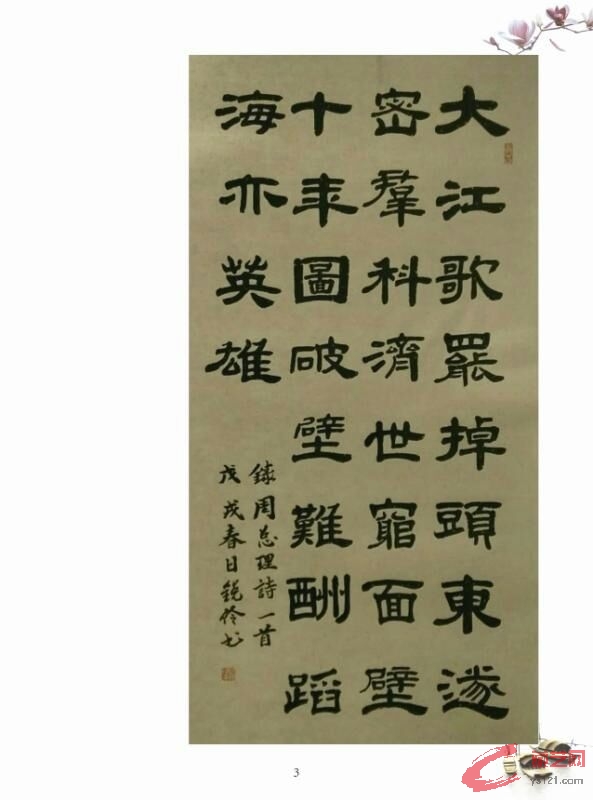 大江歌罷掉頭東邃
密羣科濟世窮面壁
十年圖破壁難酬蹈
海亦英雄
錄周总理詩一首
戊戌春日銳伶书
3
ys121.com